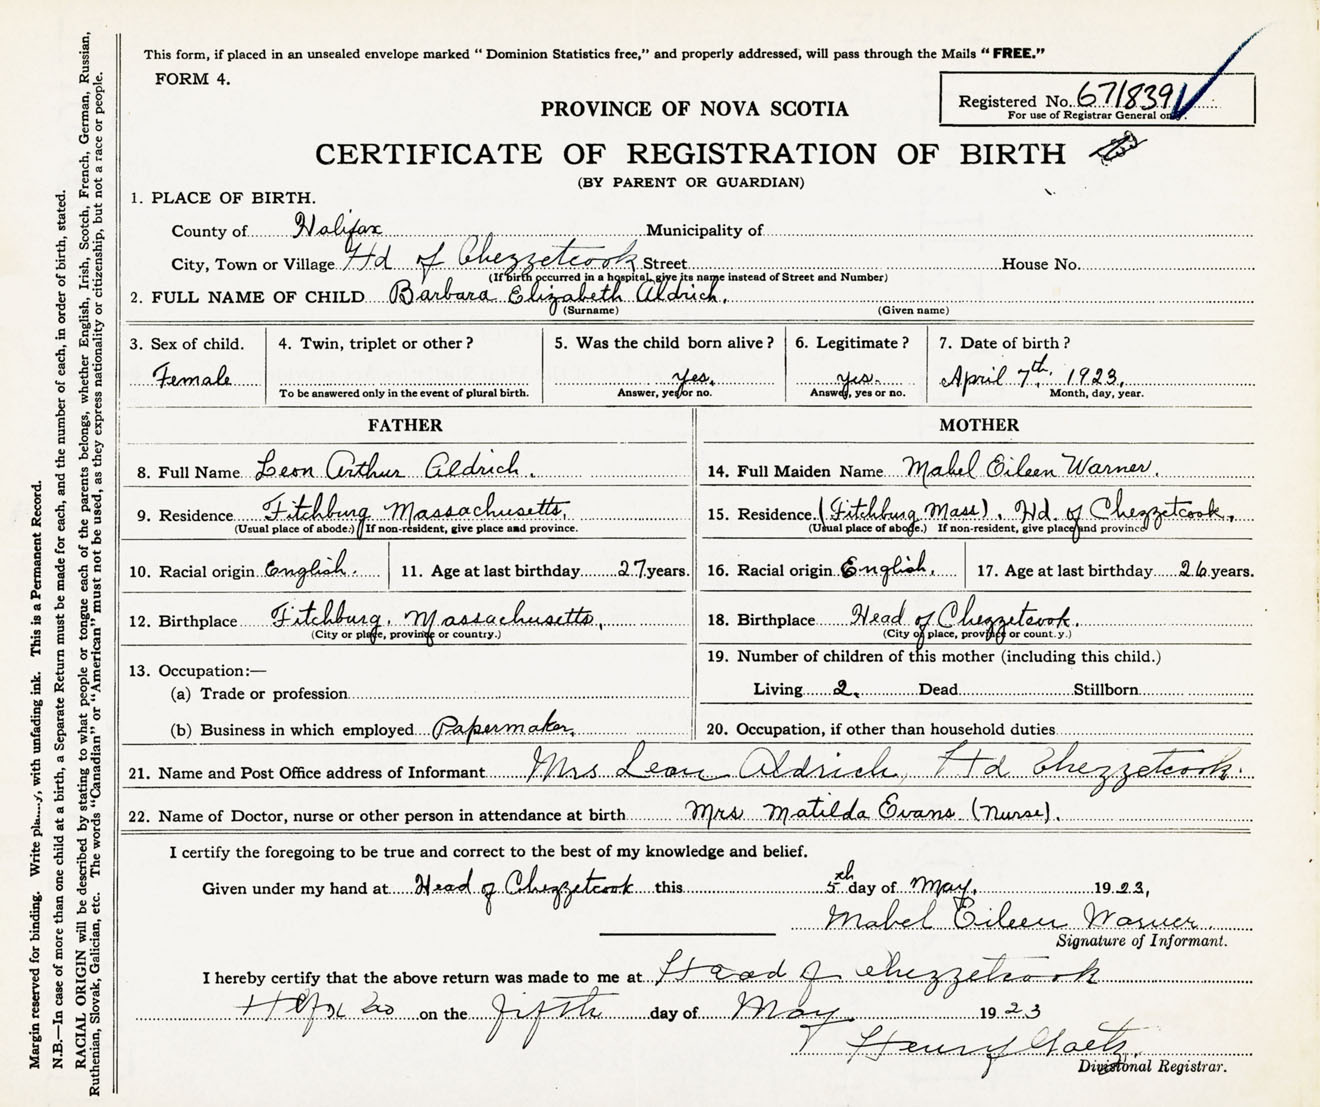 This form, if placed in an unsealed envelope marked "Dominion Statistics free," and properly addressed, will pass through the Mails "FREE."
FORM 4.
Registered No. 671839
For use of Registrar General only.
PROVINCE OF NOVA SCOTIA
CERTIFICATE OF REGISTRATION OF BIRTH
(BY PARENT OR GUARDIAN)
1. PLACE OF BIRTH.
County of Halifax Municipality of
City, Town or Village Hd of Chezzetcook Street House No.
(If birth occurred in a hospital, give its name instead of Street and Number)
2. FULL NAME OF CHILD Barbara Elizabeth Aldrich.
(Surname) (Given name)
3. Sex of child. 4. Twin, triplet or other? 5. Was the child born alive? 6. Legitimate? 7. Date of birth?
Female yes. yes. April 7th. 1923.
To be answered only in the event of plural birth. Answer, yes or no. Answer, yes or no. Month, day, year.
FATHER MOTHER
8. Full Name Leon Arthur Aldrich. 14. Full Maiden Name Mabel Eileen Warner.
9. Residence Fitchburg Massachusetts. 15. Residence (Fitchburg Mass). Hd. of Chezzetcook.
(Usual place of abode.) If non-resident, give place and province. (Usual place of abode.) If non-resident, give place and province
10. Racial origin English. 11. Age at last birthday 27 years. 16. Racial origin English. 17. Age at last birthday 26 years.
12. Birthplace Fitchburg. Massachusetts. 18. Birthplace Head of Chezzetcook.
(City or place, province or country.) (City or place, province or count.y.)
13. Occupation:— 19. Number of children of this mother (including this child.)
(a) Trade or profession Living 2. Dead Stillborn
(b) Business in which employed Papermaker. 20. Occupation, if other than household duties
21. Name and Post Office address of Informant Mrs Leon Aldrich, Hd Chezzetcook.
22. Name of Doctor, nurse or other person in attendance at birth Mrs Matilda Evans (Nurse).
I certify the foregoing to be true and correct to the best of my knowledge and belief.
Given under my hand at Head of Chezzetcook this 5th day of May, 1923,
Mabel Eileen Warner.
Signature of Informant.
I hereby certify that the above return was made to me at Head of Chezzetcook
Hfx Co on the fifth day of May 1923
Henry Gaetz.
Divisional Registrar.
Margin reserved for binding. Write pla.....y, with unfading ink. This is a Permanent Record.
N.B.—In case of more than one child at a birth, a Separate Return must be made for each, and the number of each, in order of birth, stated.
RACIAL ORIGIN will be described by stating to what people or tongue each of the parents belongs, whether English, Irish, Scotch, French, German, Russian,
Ruthenian, Slovak, Galician, etc. The words "Canadian" or "American" must not be used, as they express nationality or citizenship, but not a race or people.